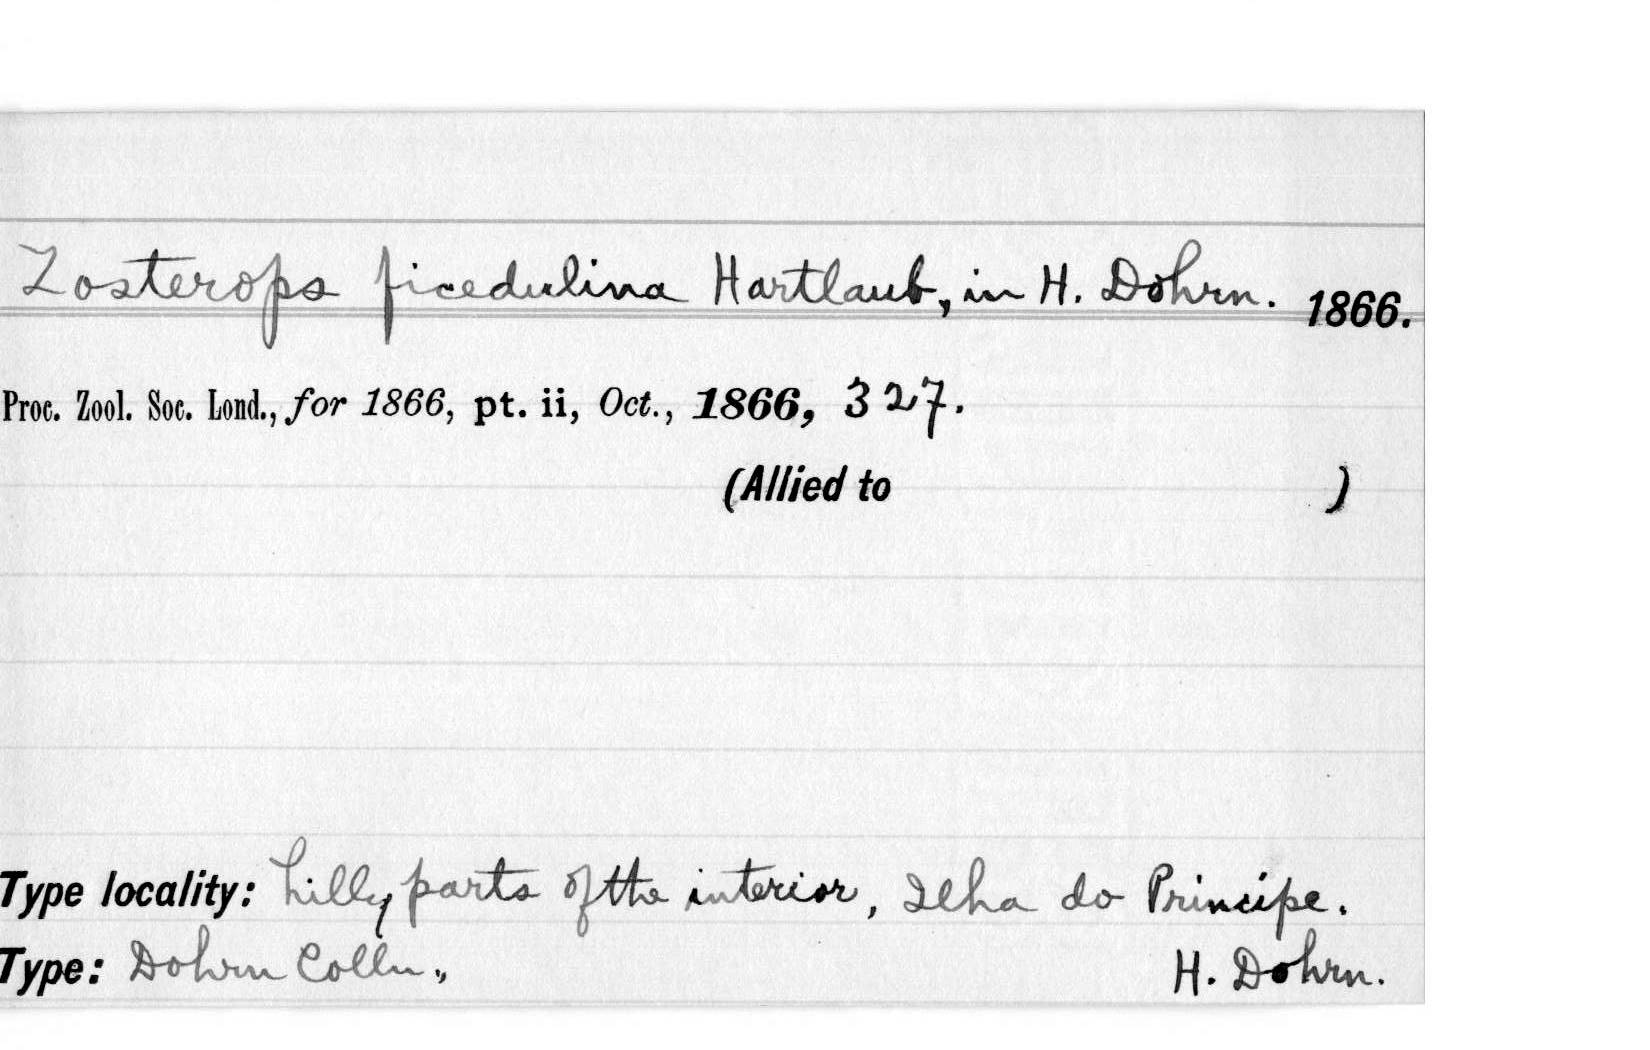 Zosterops ficedulina Hartlaub, in H. Dohrn. 1866.
Proc. Zool. Soc. Lond., for 1866, pt. ii, Oct., 1866, 327.
(Allied to )
Type locality: hilly parts of the interior, Ilha do Principe.
Type: Dohrn Colln., H. Dohrn.